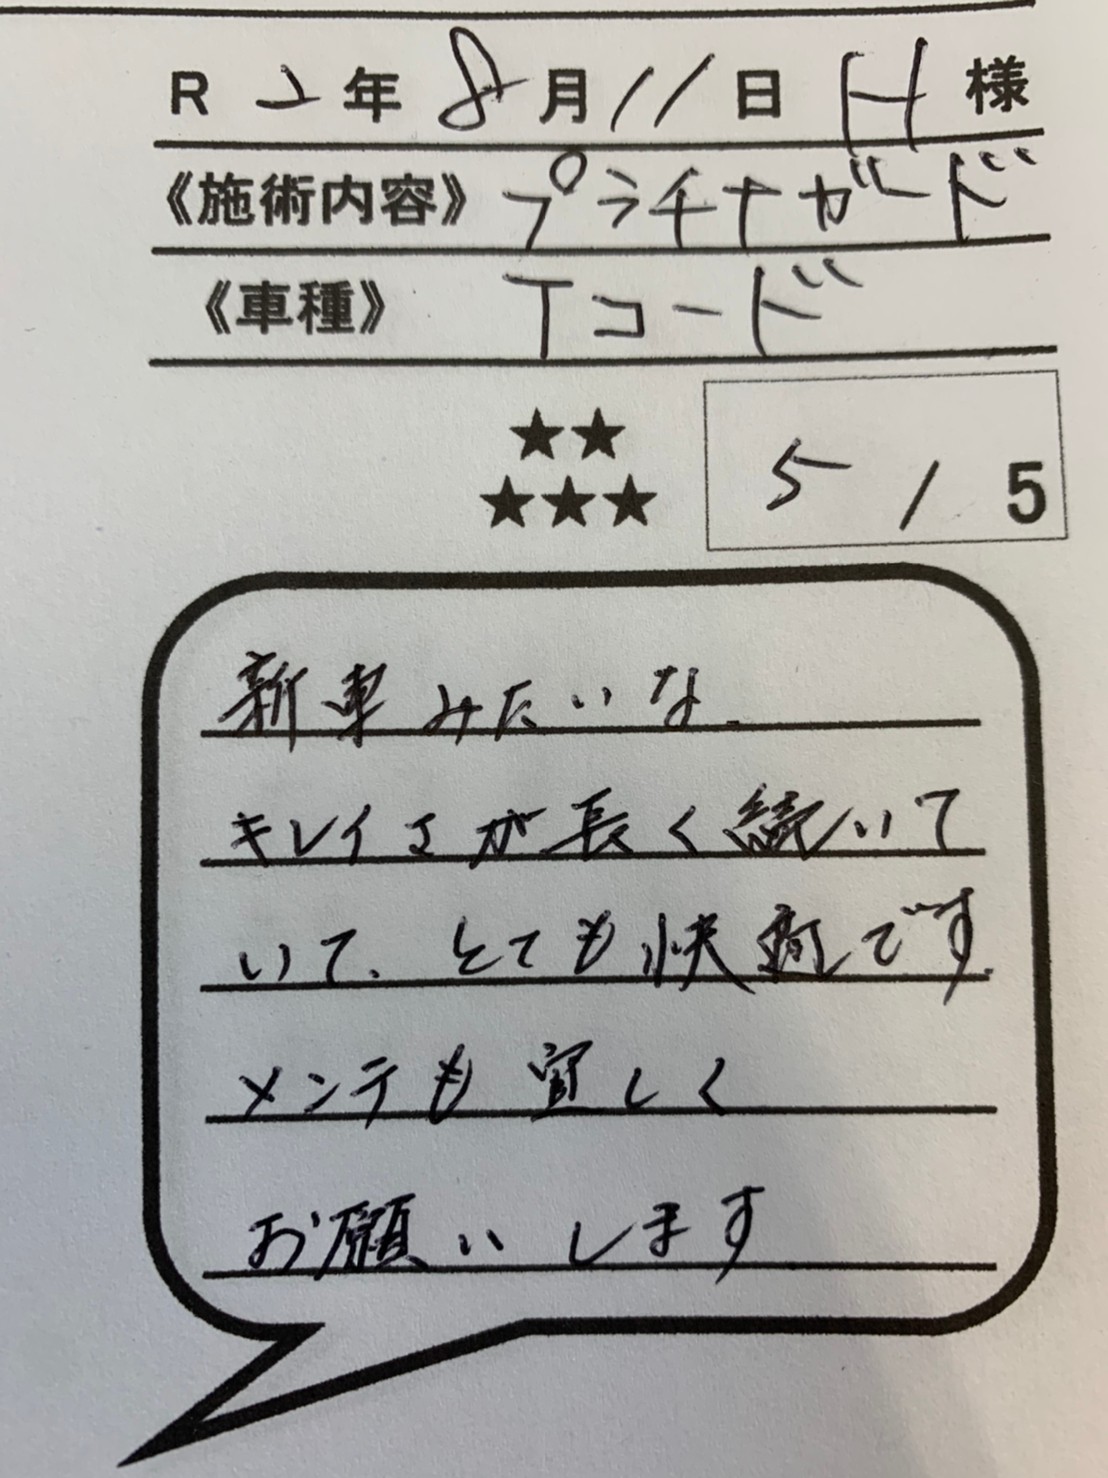 R 2 年 8 月 11 日 H 様
《施術内容》 プラチナガード
《車種》 Tコード
★★
★★★ 5 / 5
新車みたいな、
キレイさが長く続いて
いて、とても快適です。
メンテも宜しく
お願いします